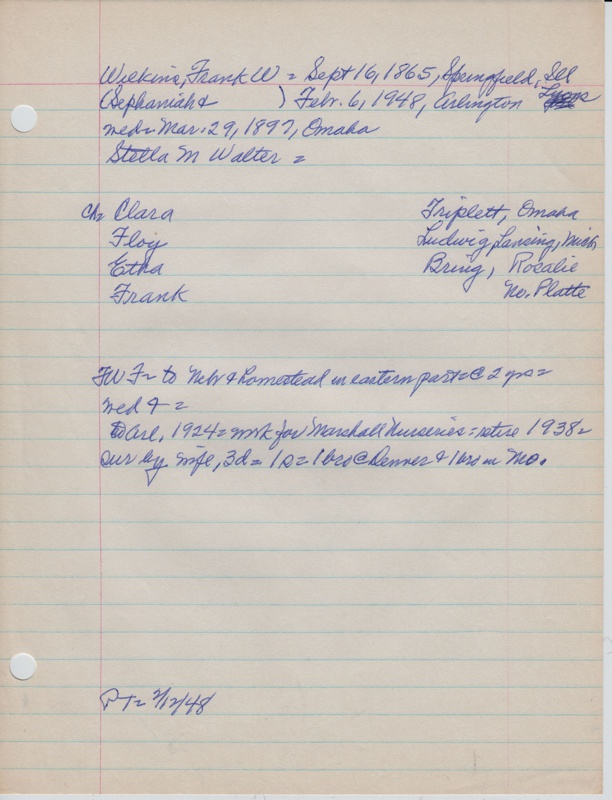 Wilkins, Frank W = Sept 16, 1865, Springfield, Ill
(Sephaniah & ) Febr. 6, 1948, Arlington Lyons
wed = Mar. 29, 1897, Omaha
Stella M Walter =
Ch = Clara Triplett, Omaha
Floy Ludwig, Lansing, Mich
Etha Bring, Rosalie
Frank No. Platte
FWF = to Nebr & homestead in eastern part = @ 2 yrs =
wed & =
to Arl, 1924 = work for Marshall Nurseries = retire 1938 =
sur by wife, 3d = 1s = 1 bro @ Denver & 1 bro in Mo.
PT = 2/12/48